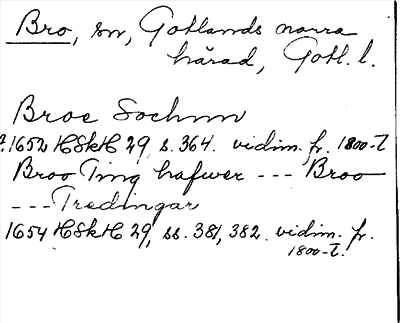 Bro, sn, Gotlands norra
härad, Gotl. l.
Broe Sochnn
1652 HSkH 29, s. 364. vidim. fr. 1800-t
Broo Ting hafwer --- Broo
--- Tredingar
1654 HSkH 29, ss. 381, 382. vidim. fr.
1800-t.